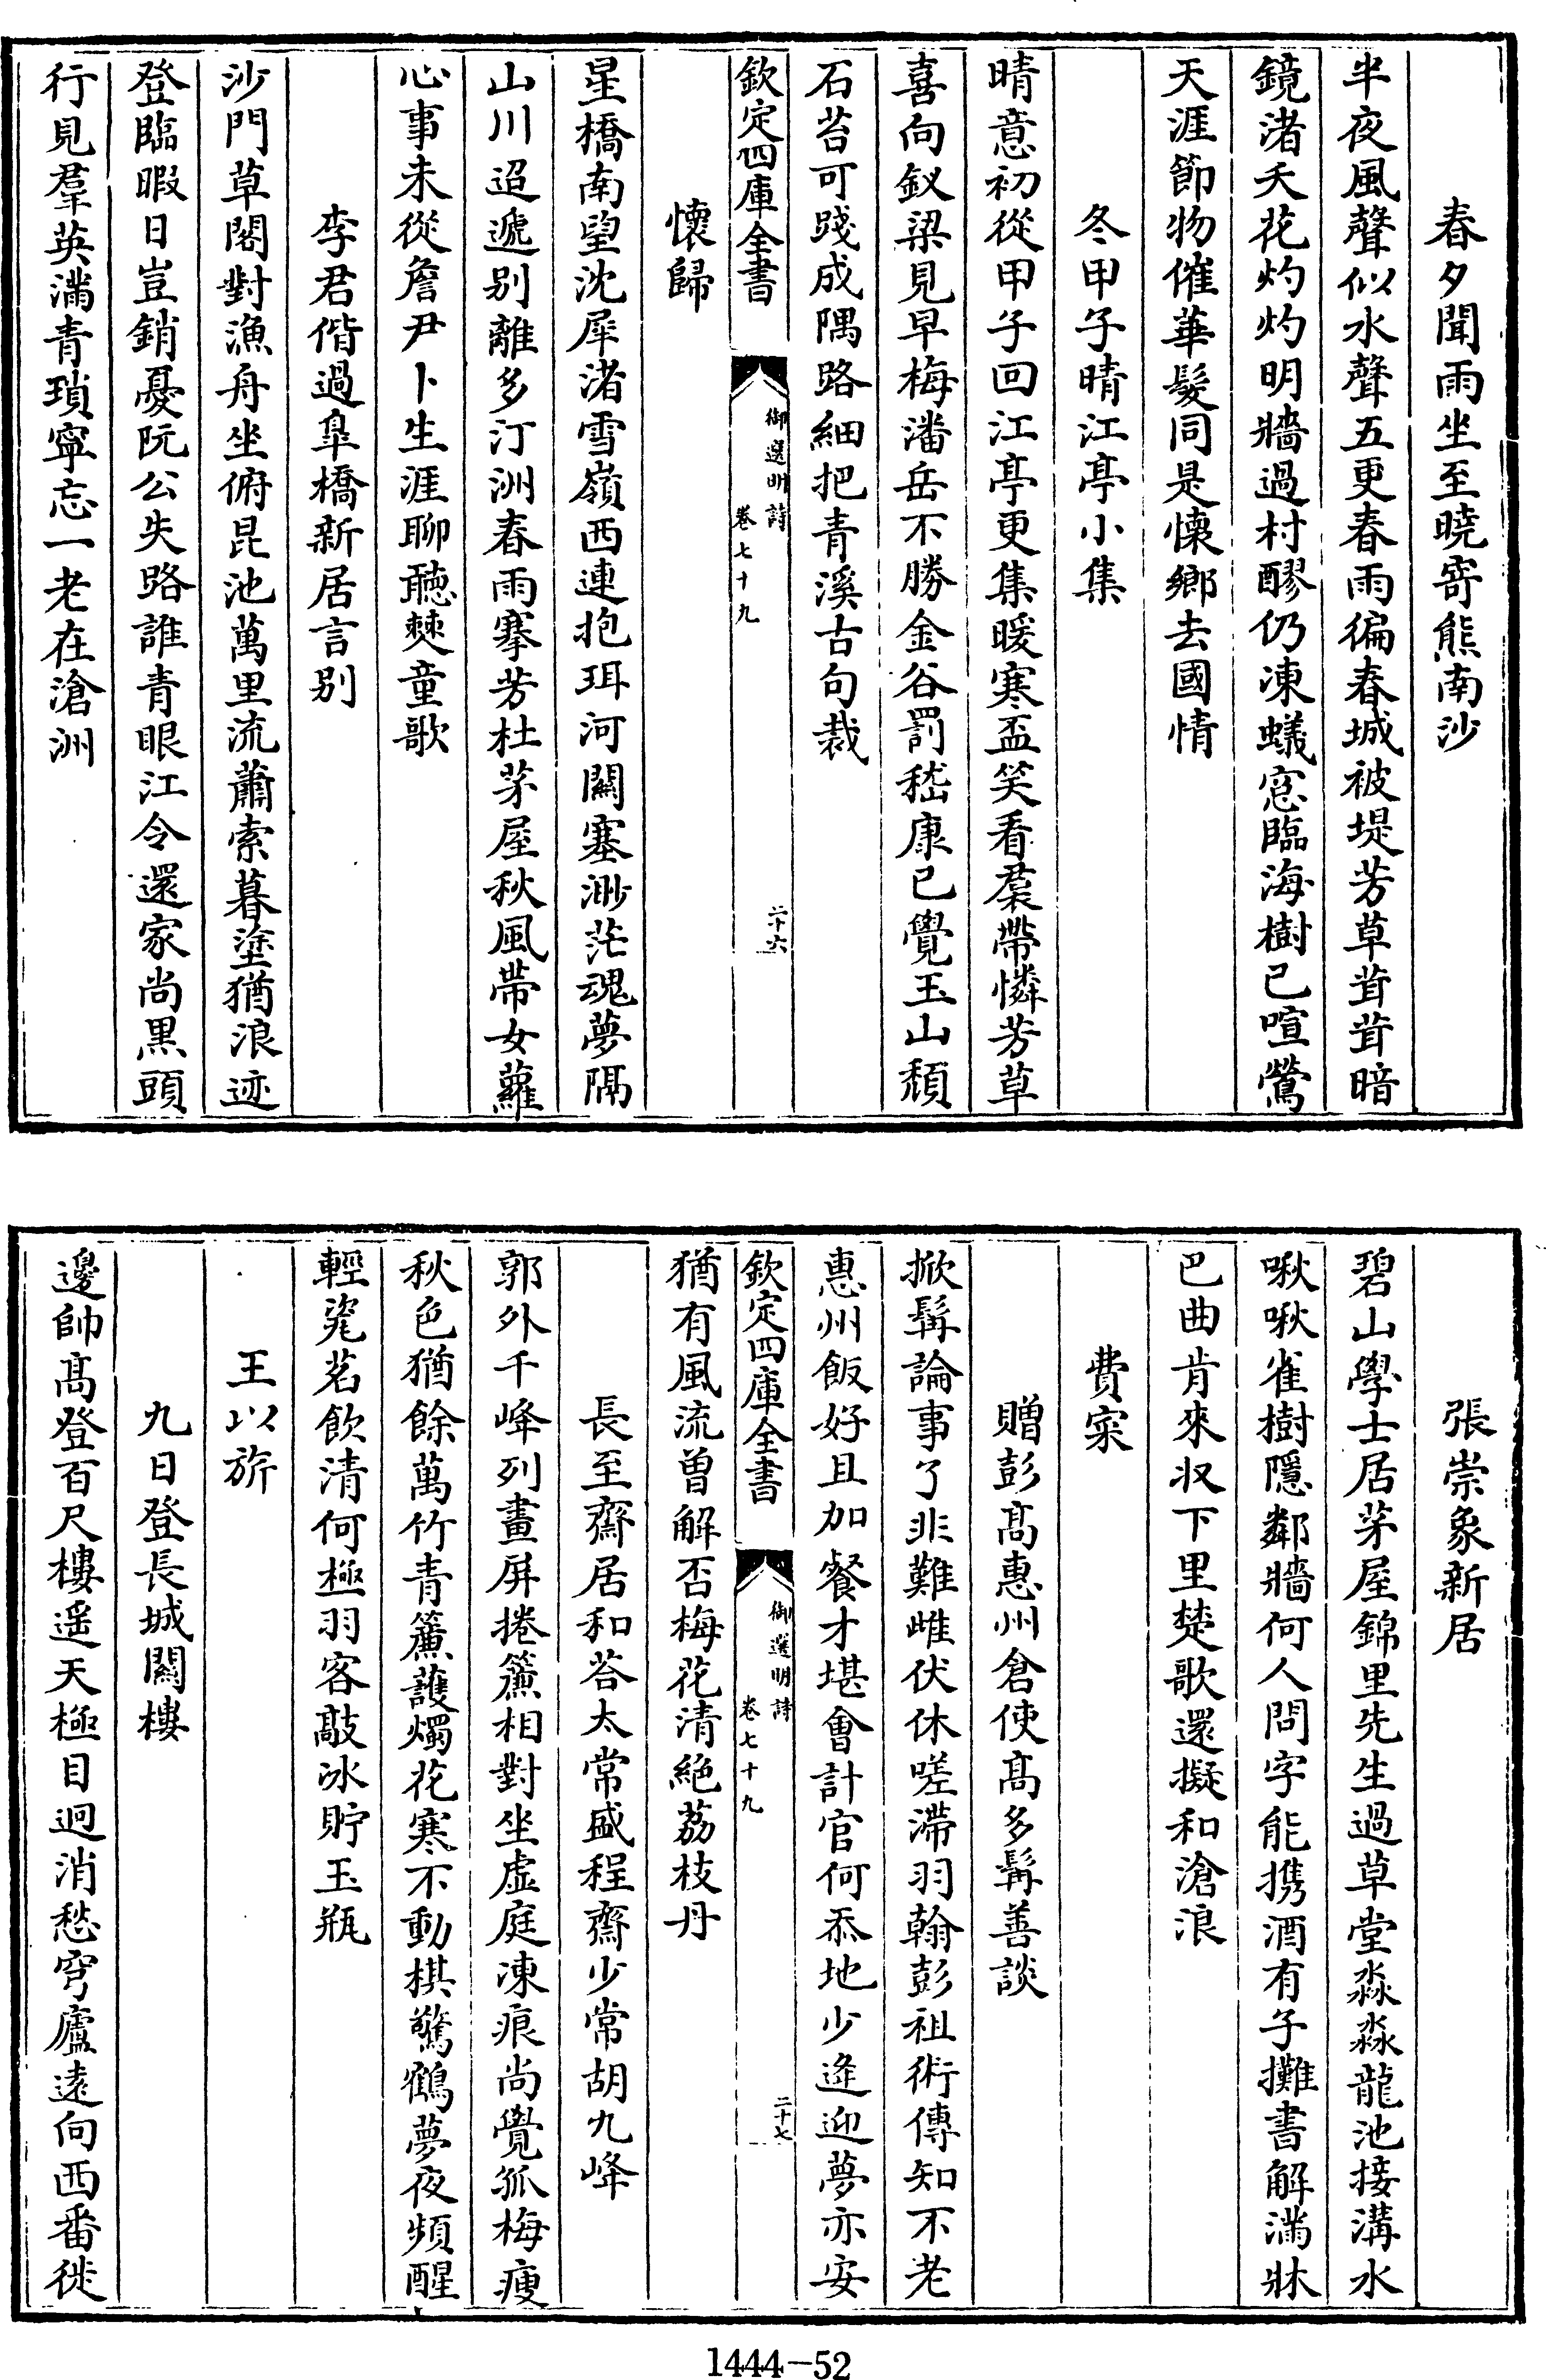 春夕聞雨坐至曉寄熊南沙
半夜風聲似水聲五更春雨徧春城被堤芳草茸茸暗
鏡渚夭花灼灼明牆過村醪仍凍蟻窓臨海樹已喧鶯
天涯節物催華髮同是懷鄉去國情
冬甲子晴江亭小集
晴意初從甲子回江亭更集暖寒盃笑看羣帶憐芳草
喜向釵梁見早梅潘岳不勝金谷罰嵇康已覺玉山頹
石苔可踐成隅路細把青溪古句裁
欽定四庫全書
御選明詩
卷七十九
二十六
懷歸
星橋南望沈犀渚雪嶺西連抱珥河關塞渺茫魂夢隔
山川迢遞别離多汀洲春雨搴芳杜茅屋秋風帶女蘿
心事未從詹尹卜生涯聊聽僰童歌
李君偕過臯橋新居言别
沙門草閣對漁舟坐俯昆池萬里流蕭索暮塗猶浪迹
登臨暇日豈銷憂阮公失路誰青眼江令還家尚黒頭
行見羣英滿青瑣寜忘一老在滄洲
張崇象新居
碧山學士居茅屋錦里先生過草堂淼淼龍池接溝水
啾啾雀樹隠鄰牆何人問字能携酒有子攤書解滿牀
巴曲肯來収下里楚歌還擬和滄浪
費寀
贈彭髙惠州倉使髙多髯善談
掀髯論事了非難雌伏休嗟滯羽翰彭祖術傳知不老
惠州飯好且加餐才堪會計官何忝地少逄迎夢亦安
欽定四庫全書
御選明詩
卷七十九
二十七
猶有風流曽解否梅花清絶荔枝丹
長至齋居和荅太常盛程齋少常胡九峰
郭外千峰列畫屏捲簾相對坐虚庭凍痕尚覺孤梅瘦
秋色猶餘萬竹青簾護燭花寒不動棋驚鶴夢夜頻醒
輕毠茗飲清何極羽客敲冰貯玉瓶
王以旂
九日登長城關樓
邊帥髙登百尺樓遥天極目迥消愁穹廬逺向西番徙
1444-52